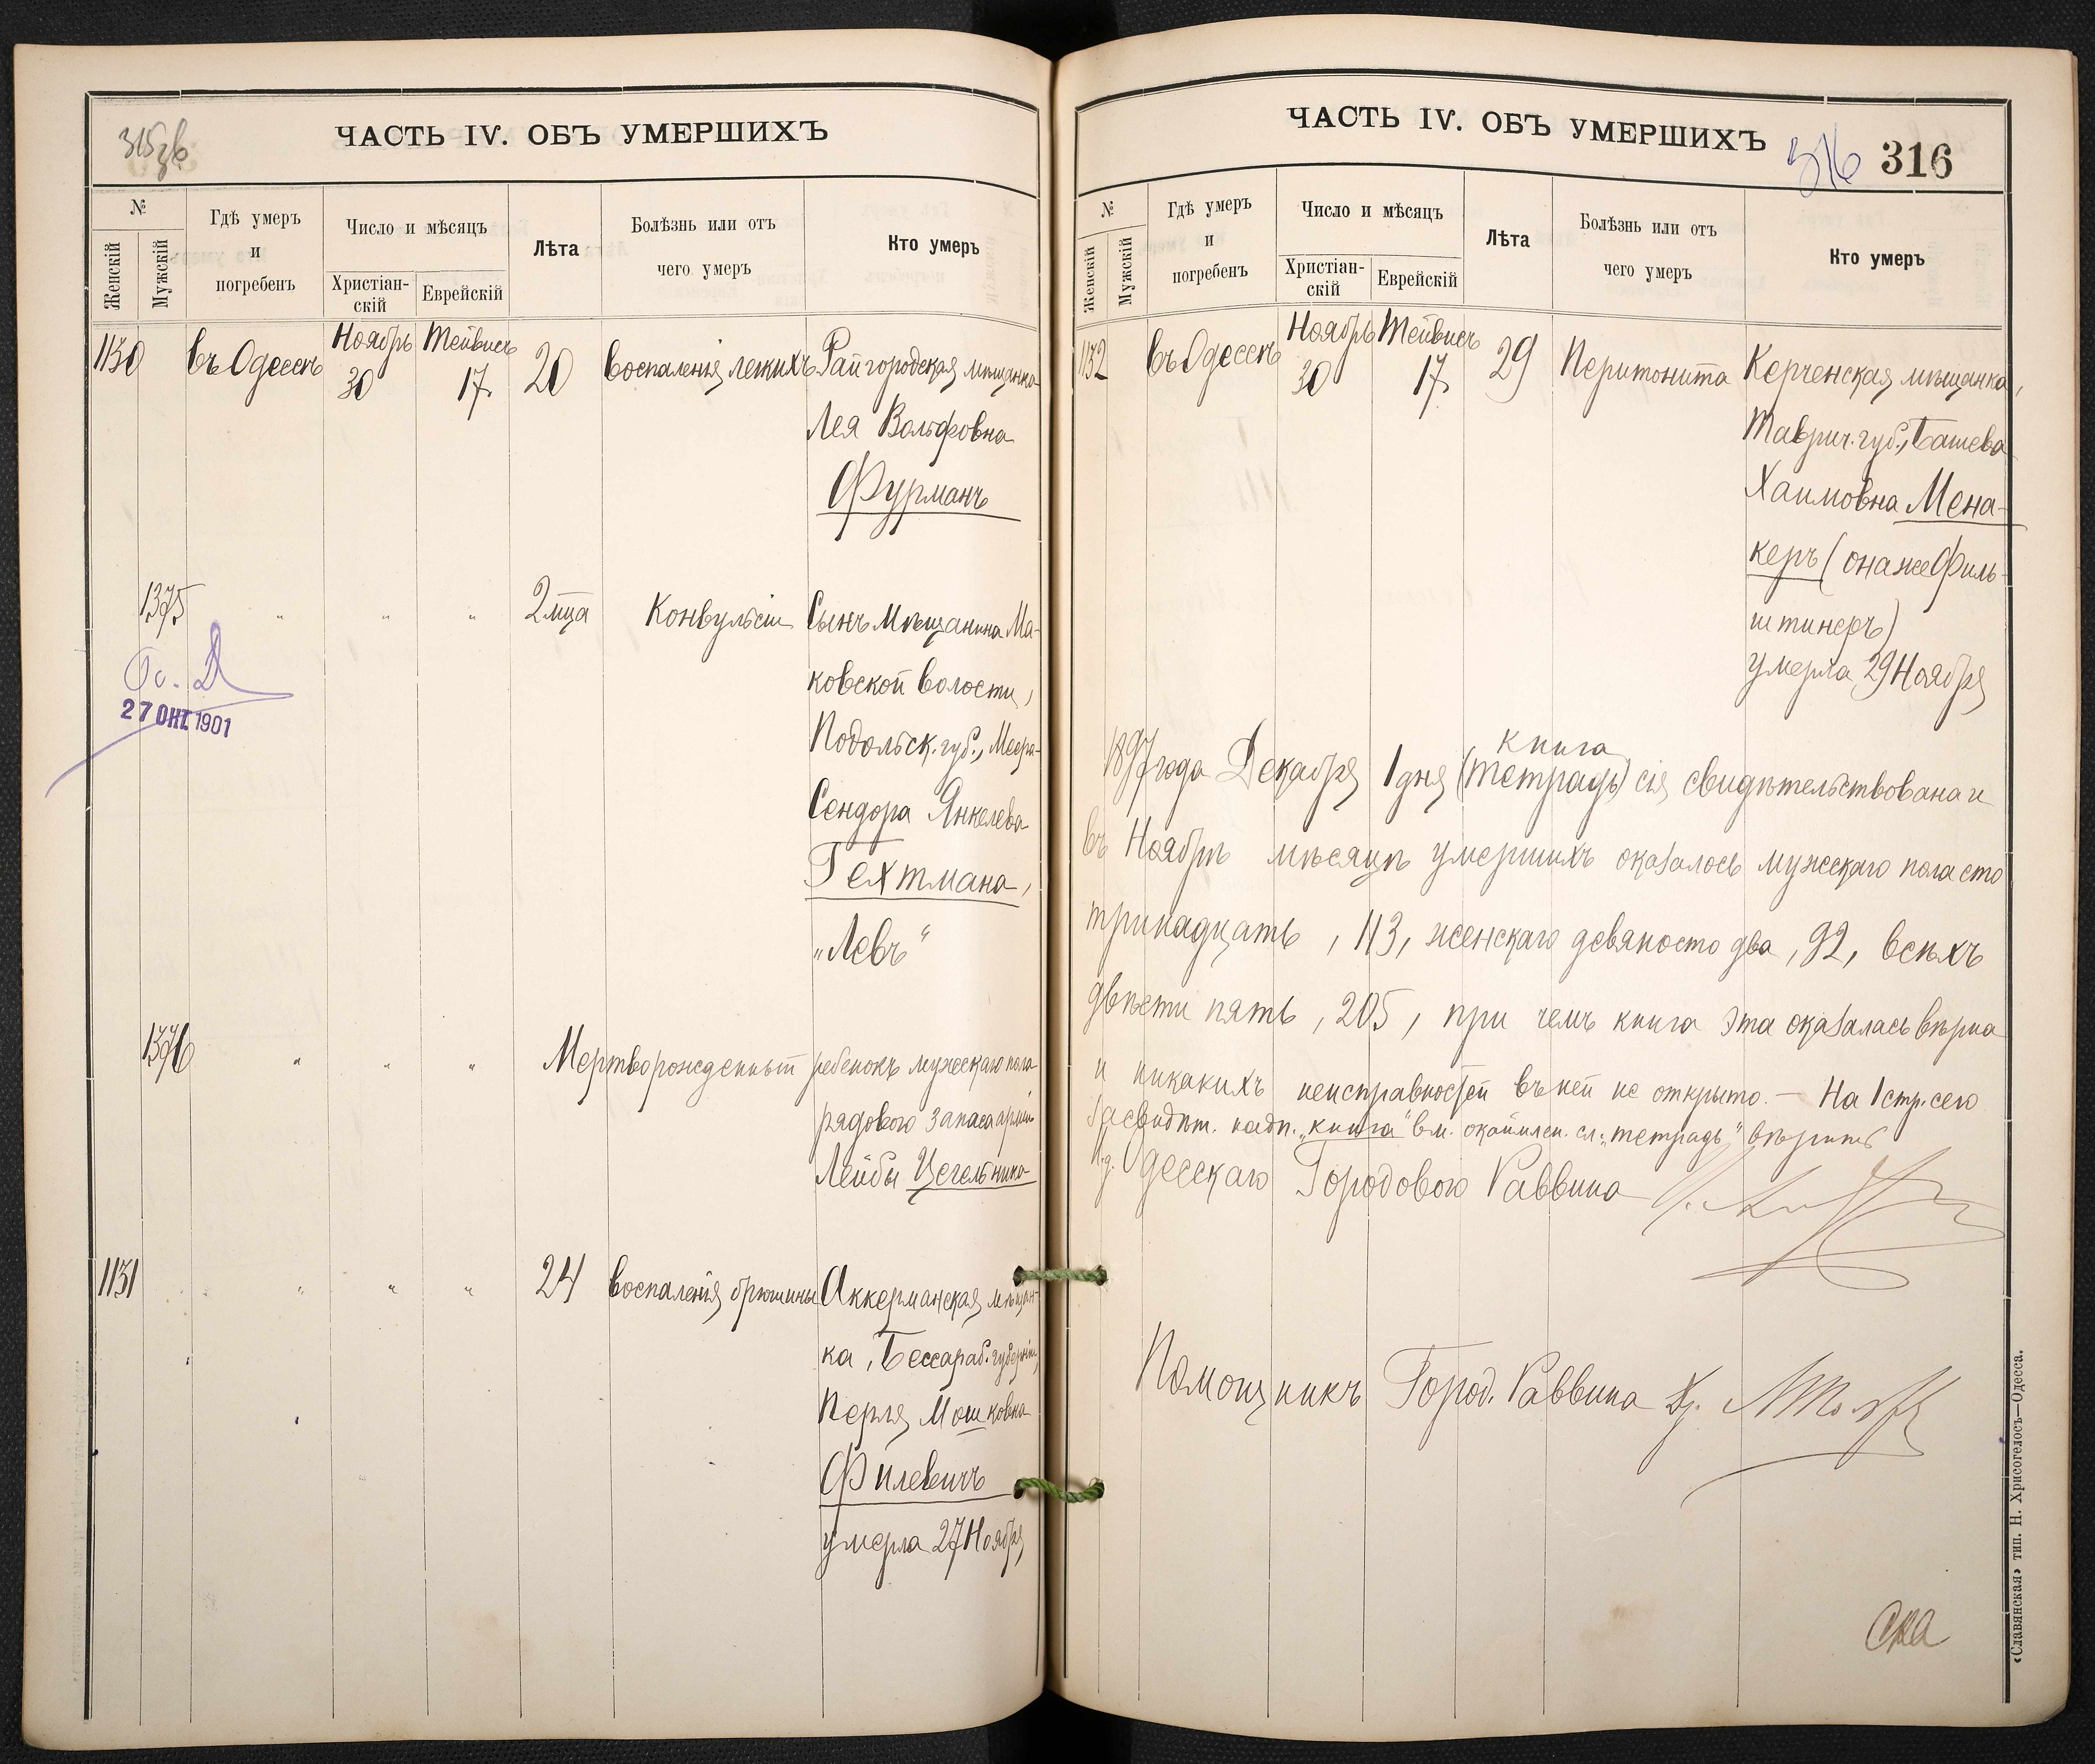 315 зв
ЧАСТЬ IV. ОБЪ УМЕРШИХЪ
№
Женскій
Мужскій
Гдѣ умеръ
и
погребенъ
Число и мѣсяцъ
Христіан-
скій
Еврейскій
Лѣта
Болѣзнь или отъ
чего умеръ
Кто умеръ
1130 въ Одессѣ Ноябрь 30 Тейвисъ 17 20 Воспаленія легкихъ Райгородская мѣщанка
Лея Вольфовна
Фурманъ
1375 " " " 2 мца Конвульсіи Сынъ мѣщанина Ма-
ковской волости,
Подольск. губ.,
Сендора Янкелева
Гехтмана,
„Левъ“
Ос. Д
27 ОКТ. 1901
1376 " " " Мертворожденный ребенокъ мужескаго пола
рядового запаса арміи
Лейбы Цегельника
1131 " " " 24 Воспаленія брюшины Аккерманская мѣщан-
ка, Бессараб. губерніи,
Перля Мошковна
Филевичъ
умерла 27 Ноября
ЧАСТЬ IV. ОБЪ УМЕРШИХЪ
316 316
№
Женскій
Мужскій
Гдѣ умеръ
и
погребенъ
Число и мѣсяцъ
Христіан-
скій
Еврейскій
Лѣта
Болѣзнь или отъ
чего умеръ
Кто умеръ
1132 въ Одессѣ Ноябрь 30 Тейвисъ 17 29 Перитонита Керченская мѣщанка,
Таврич. губ., Башева
Хаимовна Мена-
керъ (она же Филь-
штинеръ)
умерла 29 Ноября
книга
1897 года Декабря 1 дня (тетрадь) сія свидѣтельствована и
въ Ноябрѣ мѣсяцѣ умершихъ оказалось мужескаго пола сто
тринадцать, 113, женскаго девяносто два, 92, всѣхъ
двѣсти пять, 205, при чемъ книга эта оказалась вѣрна
и никакихъ неисправностей въ ней не открыто. — На 1 стр. сего
засвидѣт. надп. „книга“ вм. окаймлен. сл. „тетрадь“ вѣрить
И.д. Одесскаго Городового Раввина
Помощникъ Город. Раввина Др.
«Славянская» тип. Н. Хрисогелосъ—Одесса.